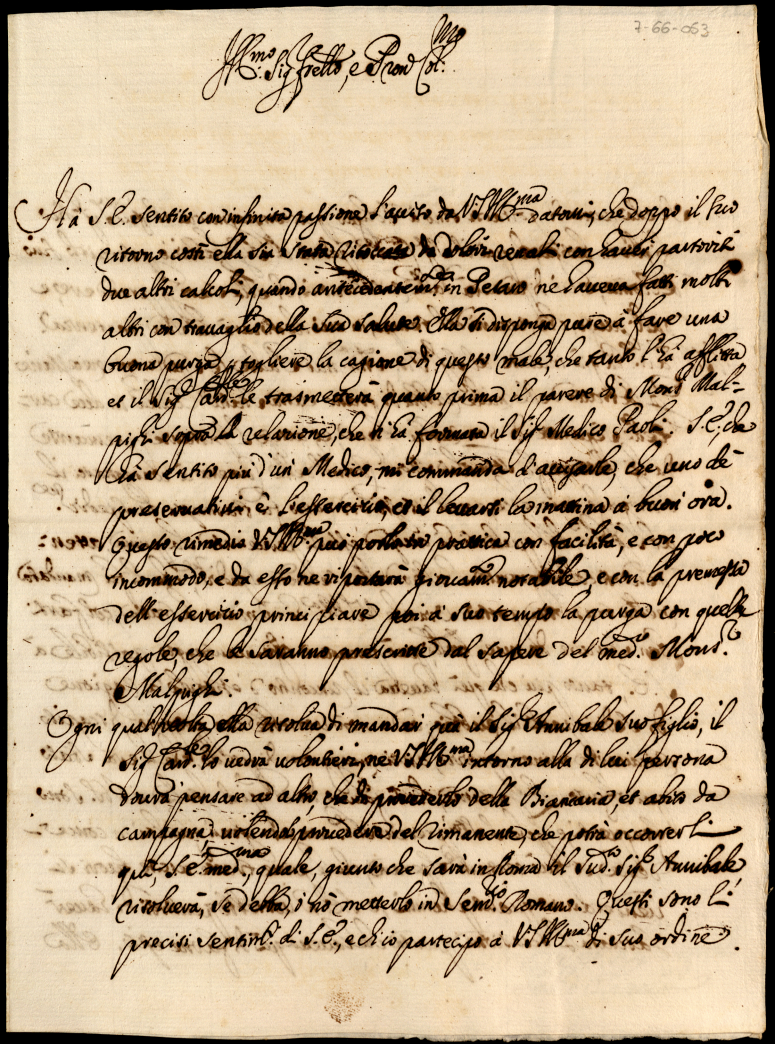 7-66-053
Ill.mo Sig.r Frello, e Pron Col.mo
Hà S.E. sentito con infinita passione l'auiso da V.S. Ill.ma datomi, che doppo il suo
ritorno costì ella sia stata da dolori renali con hauer partoriti
due altri calcoli, quando antecedentem.te in Pesaro ne haueua fatti molti
altri con trauaglio della sua salute. Ella si disponga pure à fare una
buona purga, p togliere la cagione di questo male, che tanto l'hà afflitta
et il Sig.r Card.le le trasmetterà quanto prima il parere di Mons.r Mal-
pighi sopra la relazione, che n'hà formata il Sig.r Medico Paoli. S.E., che
hà sentito più d'un Medico, mi commanda d'auisarla, che uno de
preseruatiui è l'essercitio, et il leuarsi la mattina à buon'ora.
Questo rimedio V.S. Ill.ma può porlo in prattica con facilità, e con poco
incommodo, e da esso ne riportarà giouam.to notabile, e con la premessa
dell'essercitio principiare poi à suo tempo la purga con quelle
regole, che le saranno prescritte dal sapere del med.o Mons.r
Malpighi
Ogni qual uolta ella risolua di mandar quà il Sig.r Annibale suo figlio, il
Sig.r Card.le lo uedrà uolontieri, nè V.S. Ill.ma intorno alla di lui persona
dourà pensare ad altro, che di prouederlo della Biancaria, et abito da
campagna, uolendo prouedere del rimanente, che potrà occorrerli
quà, S.E. med.ma, quale, giunto che sarà in Roma il sud.o Sig.r Annibale
risoluerà, se debba, ò nò metterlo in Sem.rio Romano. Questi sono li
precisi sentim.ti di S.E., e ch'io partecipo à V.S. Ill.ma di suo ordine.